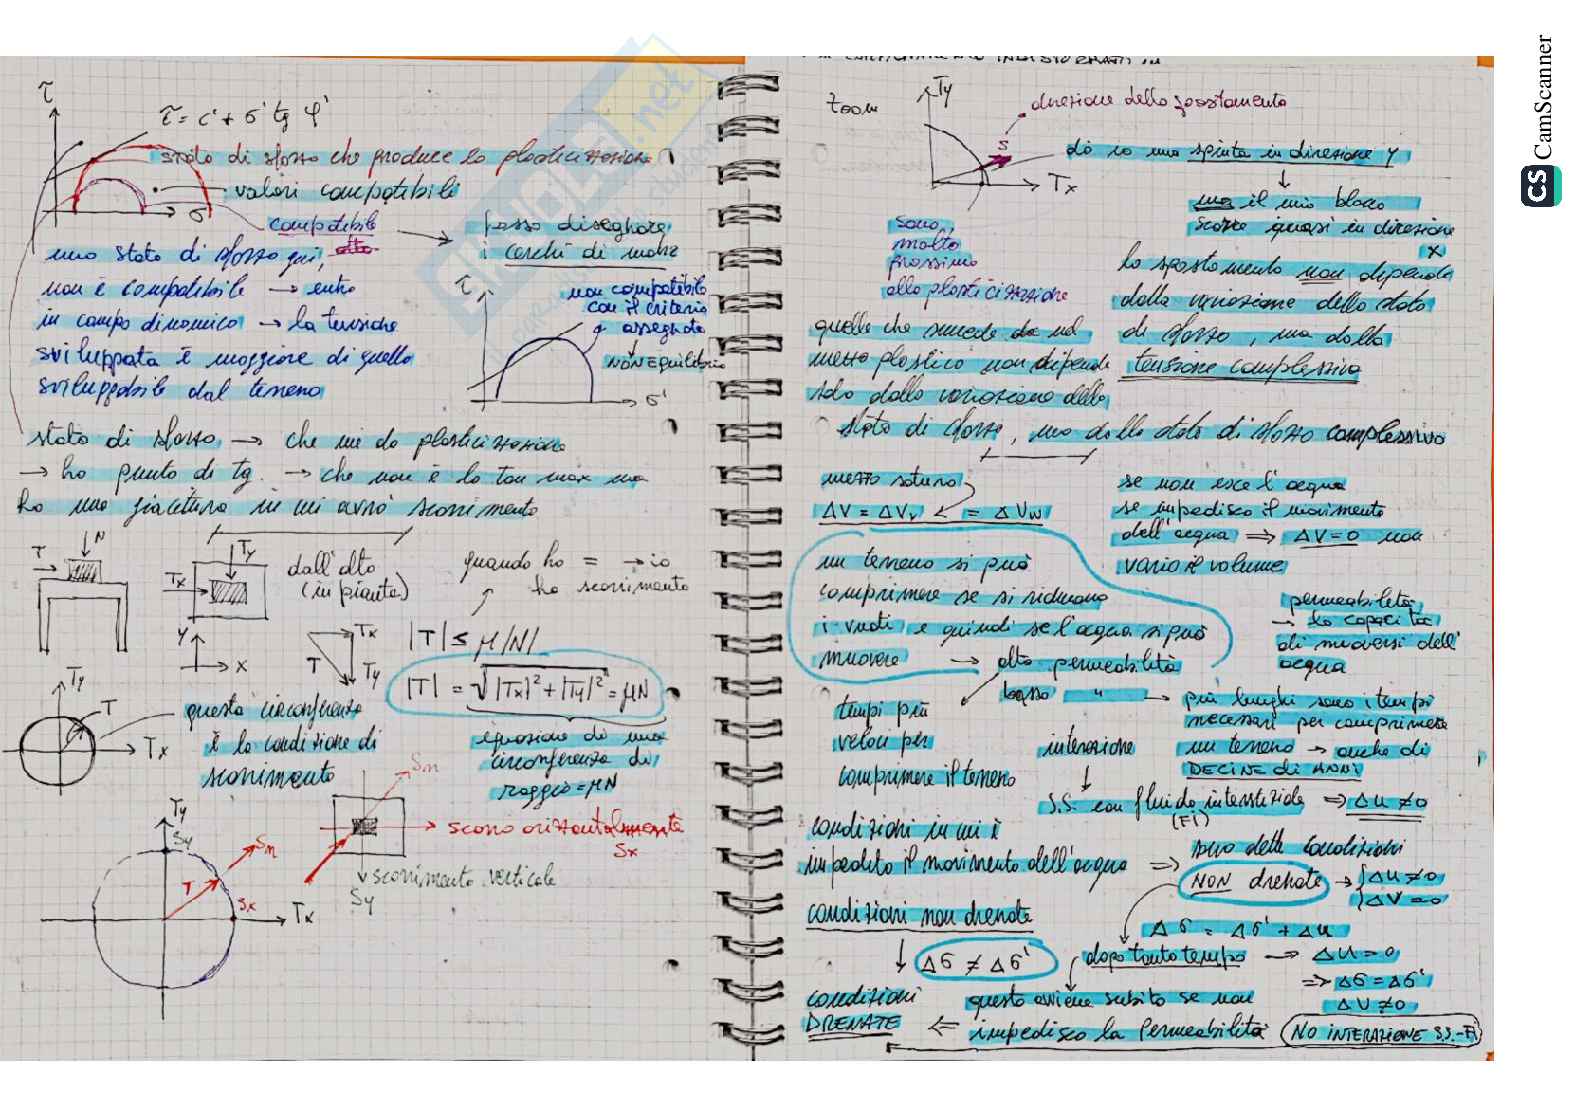 τ
τ = c' + σ' tg φ'
stato di sforzo che produce la plasticizzazione
valori compatibili
σ'
compatibile
posso disegnare
i cerchi di mohr
uno stato di sforzo qui,
non è compatibile → entro
in campo dinamico → la tensione
sviluppata è maggiore di quella
sviluppabile dal terreno
τ
non compatibile
con il criterio
assegnato
NON EQUILIBRIO
σ'
stato di sforzo → che mi dà plasticizzazione
→ ho punto di tg. → che non è la tan max ma
ho una giacitura in cui avrò scorrimento
T
N
Ty
Tx
dall'alto
(in pianta)
quando ho = → io
ho scorrimento
Y
X
Tx
T
Ty
|T| ≤ μ|N|
|T| = √|Tx|² + |Ty|² = μN
Ty
T
Tx
questa circonferenza
è la condizione di
scorrimento
equazione di una
circonferenza di
raggio = μN
Sn
scorro orizzontalmente
Sx
scorrimento verticale
Sy
Ty
Sy
Sn
T
Sx
Tx
zoom
Ty
direzione dello spostamento
S
Tx
dò io una spinta in direzione y
ma il mio blocco
scorre quasi in direzione
x
sono
molto
prossimo
alla plasticizzazione
lo spostamento non dipende
dalla variazione dello stato
di sforzo, ma dalla
tensione complessiva
quello che succede da un
mezzo plastico non dipende
solo dalla variazione dello
stato di sforzo, ma dallo stato di sforzo complessivo
mezzo saturo
ΔV = ΔVv = ΔVw
se non esce l'acqua
se impedisco il movimento
dell'acqua ⇒ ΔV=0 non
vario il volume
un terreno si può
comprimere se si riducono
i vuoti e quindi se l'acqua si può
muovere → alta permeabilità
bassa " →
permeabilità
→ la capacità
di muoversi dell'
acqua
tempi più
veloci per
comprimere il terreno
più lunghi sono i tempi
necessari per comprimere
un terreno → anche di
DECINE di ANNI
interazione
S.S. con fluido interstiziale ⇒ Δu ≠ 0
(FI)
condizioni in cui è
impedito il movimento dell'acqua ⇒
sono dette condizioni
NON drenate → Δu ≠ 0
ΔV = 0
condizioni non drenate
Δσ = Δσ' + Δu
Δσ ≠ Δσ'
dopo tanto tempo → Δu = 0
⇒ Δσ = Δσ'
ΔV ≠ 0
condizioni
DRENATE
questo avviene subito se non
⇐ impedisco la permeabilità
NO INTERAZIONE S.S.-FI
CS CamScanner